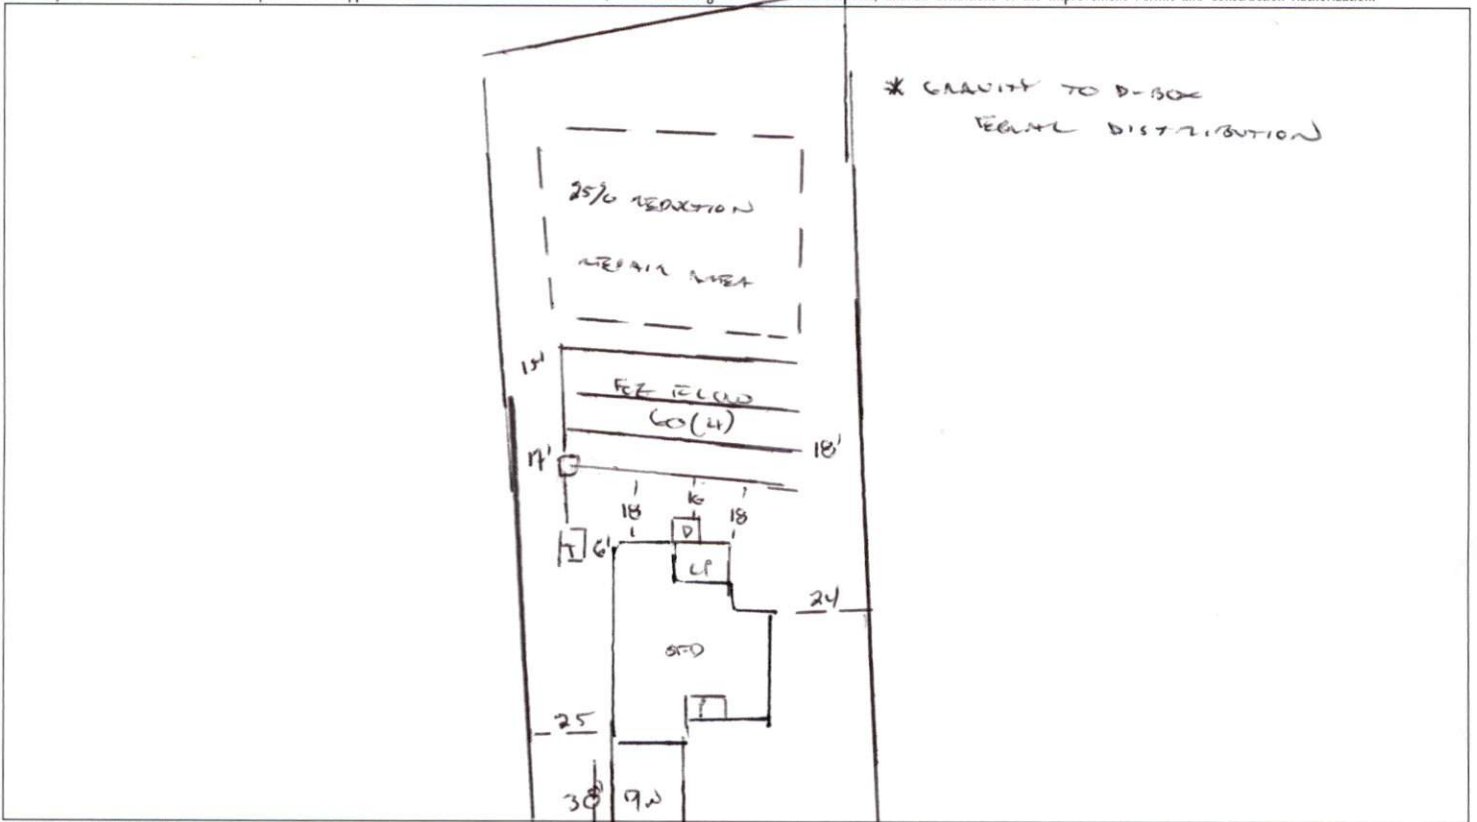 * GRAVITY TO D-BOX
EQUAL DISTRIBUTION
25% REDUCTION
REPAIR AREA
15'
EZ FLOW
60(4)
18'
17'
18
16
18
D
T
6'
LP
24
SFD
25
30'
D/W